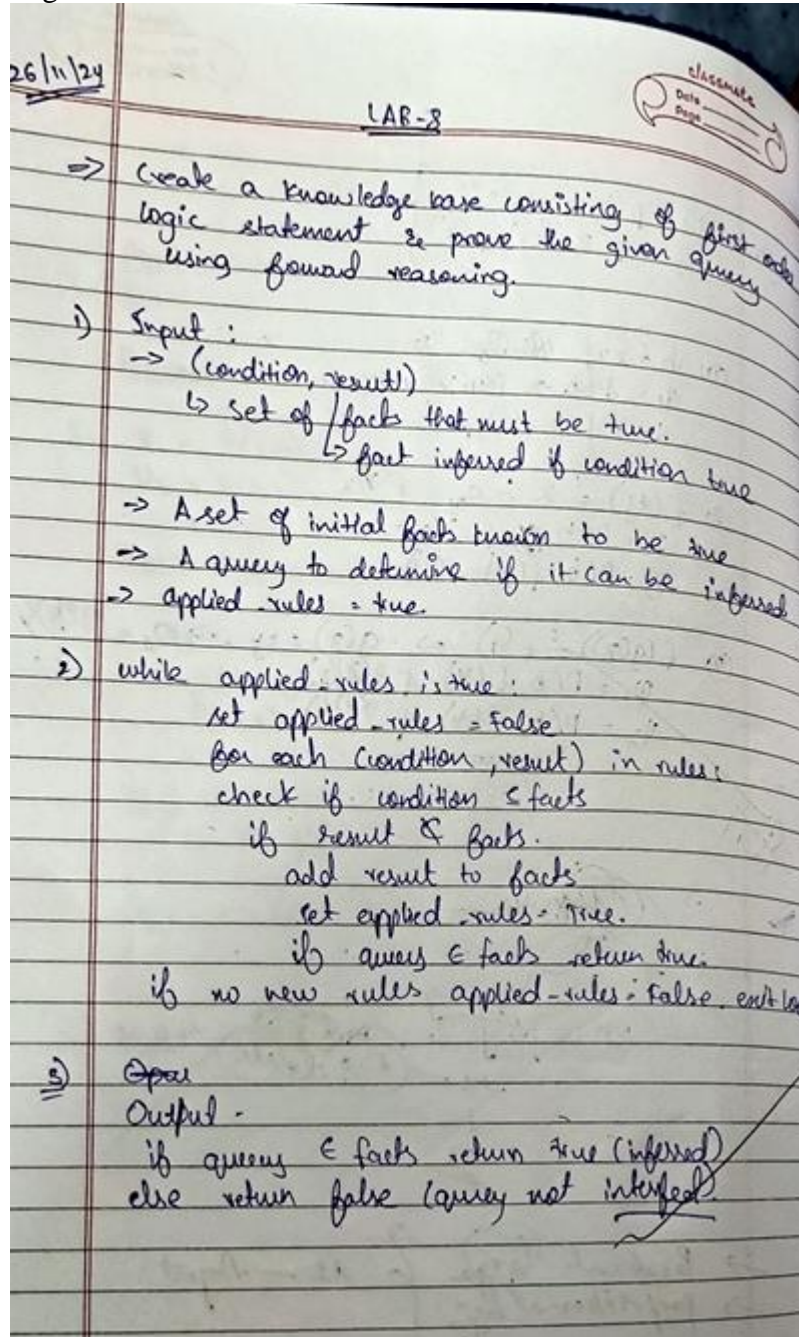 26/11/24
classmate
Date
Page
LAB-8
=> Create a knowledge base consisting of first order
logic statement & prove the given query
using foward reasoning.
1) Input :
-> (condition, result)
↳ set of facts that must be true.
↳ fact inferred if condition true
-> A set of initial facts known to be true
-> A query to determine if it can be inferred
-> applied-rules = true.
2) while applied-rules is true :
set applied-rules = False
for each (condition, result) in rules:
check if condition ⊆ facts
if result ∉ facts.
add result to facts
set applied-rules = True.
if query ∈ facts return true.
if no new rules applied-rules = False. exit
3)
Output -
if query ∈ facts return true (inferred)
else return false (query not